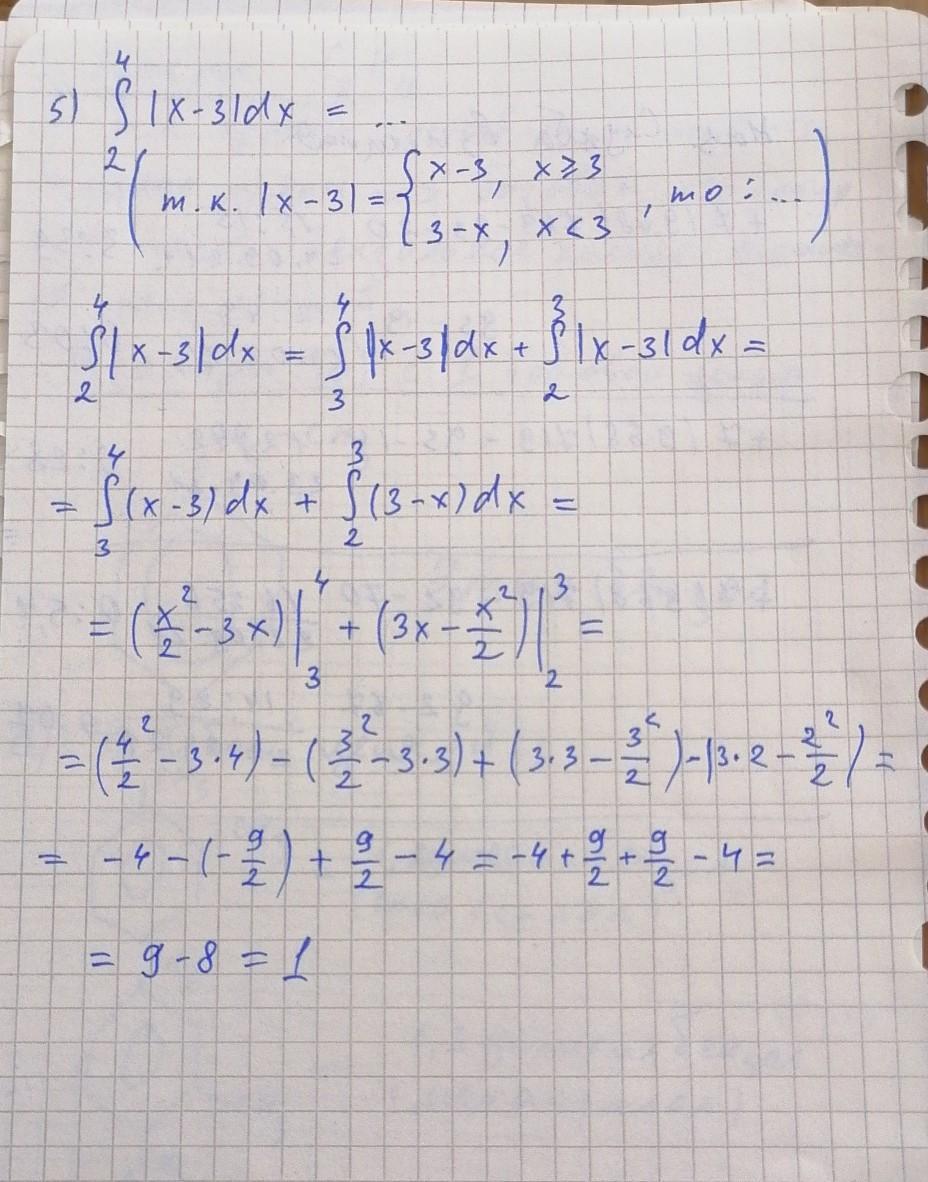 5) ∫₂⁴ |x-3|dx = ...
( т.к. |x-3| = { x-3, x ⩾ 3 ; 3-x, x < 3 , то : ... )
∫₂⁴ |x-3|dx = ∫₃⁴ |x-3|dx + ∫₂³ |x-3|dx =
= ∫₃⁴ (x-3)dx + ∫₂³ (3-x)dx =
= (x²/2 - 3x)|₃⁴ + (3x - x²/2)|₂³ =
= (4²/2 - 3·4) - (3²/2 - 3·3) + (3·3 - 3²/2) - (3·2 - 2²/2) =
= -4 - (-9/2) + 9/2 - 4 = -4 + 9/2 + 9/2 - 4 =
= 9 - 8 = 1